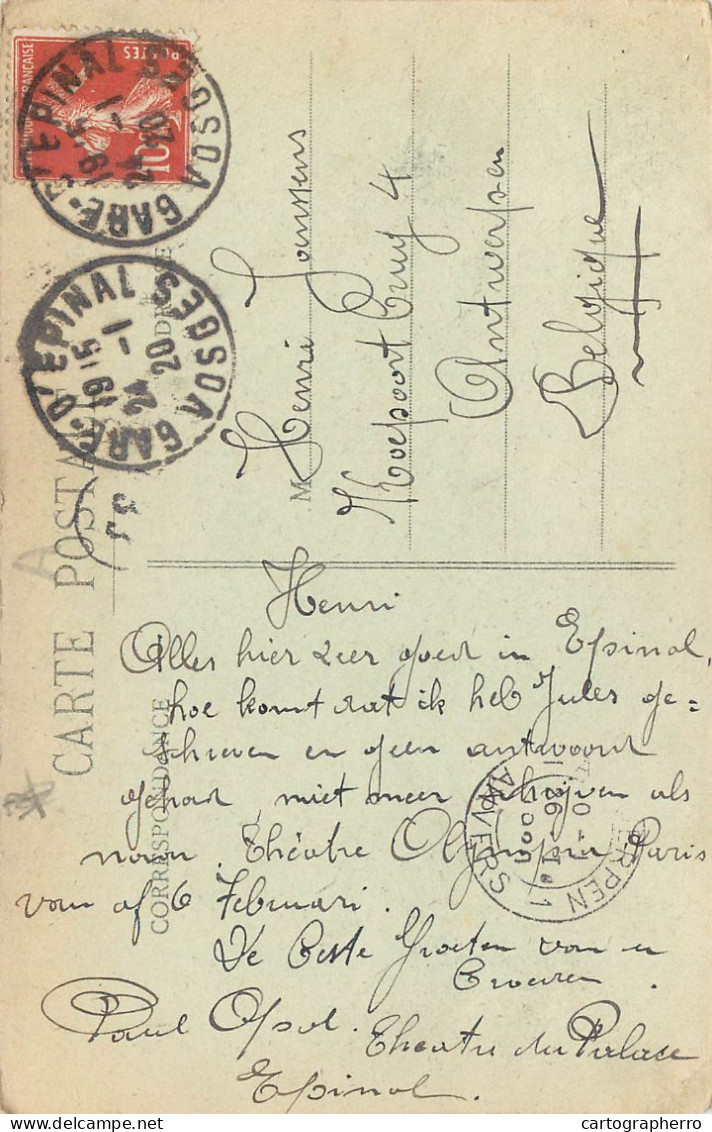 CARTE POSTALE
CORRESPONDANCE
RÉPUBLIQUE FRANÇAISE
POSTES
10
GARE D'EPINAL VOSGES
19-15
24-1
20
GARE D'EPINAL VOSGES
19-15
24-1
20
M
Henri Janssens
4
Antwerpen
Belgique
Henri
Alles hier zeer goed in Epinal,
hoe komt dat ik heb Jules ge=
schreven en geen antwoord
gehad, niet meer schrijven als
naar Théatre Olympia Paris
van af 6 Februari.
De Beste Groeten van en
Paul Opol. Theatre du Palace
Epinal.
ANVERS
ERPEN 1
cartographerro